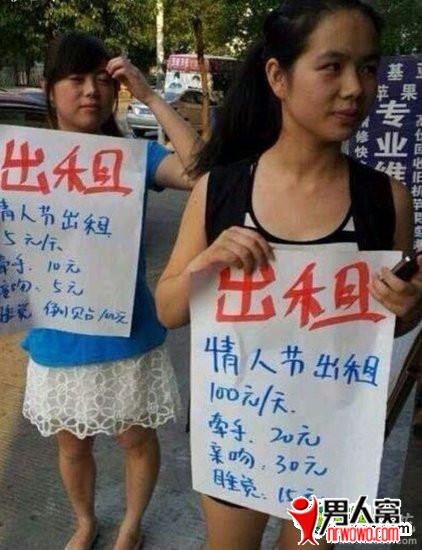 出租
情人节出租
5元/天
牵手：10元
亲吻：5元
睡觉 倒贴100元
出租
情人节出租
100元/天
牵手．20元
亲吻：30元
睡觉：15元
基
苹果
专业维
高价回收旧机
男人窝
nrwowo.com